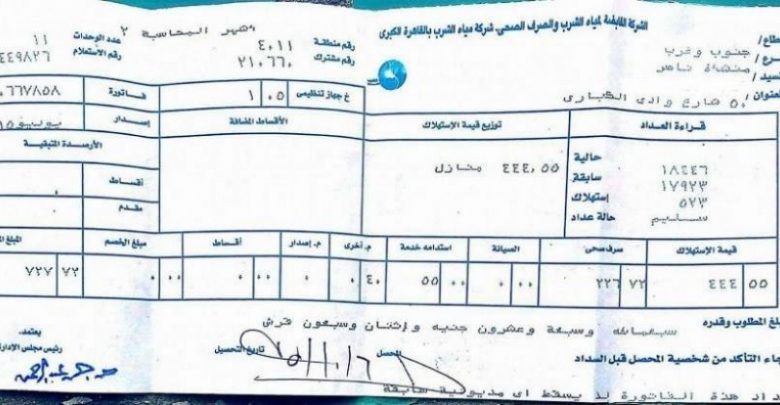 الشركة القابضة لمياه الشرب والصرف الصحى، شركة مياه الشرب بالقاهرة الكبرى
أشهر المحاسبة ٢
عدد الوحدات ١١
رقم منطقة ٤٠١١
رقم الاستعلام ٤٤٩٨٢٦
رقم مشترك ٢١٠٦٦٠
طاع/ جنوب وغرب
رع/ منشاة ناصر
سيد/
عنوان/ ٥٠ شارع وادى الكبارى
خ جهاز تنظيمى ١ ٠٥
فاتورة ٠٦٦٧٨٥٨
إصدار يوليو ١٥
قراءة العداد
توزيع قيمة الإستهلاك
الأقساط المضافة
الأرصدة المتبقية
حالية ١٨٤٤٦
سابقة ١٧٩٢٣
إستهلاك ٥٢٣
حالة عداد سليم
٤٤٤،٥٥ منازل
أقساط ٠
مقدم ٠
قيمة الإستهلاك
صرف صحى
الصيانة
استدامه خدمة
م. أخرى
م. إصدار
أقساط
مبلغ الخصم
المبلغ
٥٥ ٤٤٤
٧٢ ٢٢٦
٠٠ ٠
٠٠ ٥٥
٤٠ ٠
٠٠ ٠
٠٠ ٠
٧٢ ٧٢٧
لغ المطلوب وقدره سبعمائه وسبعة وعشرون جنيه وإثنان وسبعون قرش
جاء التأكد من شخصية المحصل قبل السداد
المحصل
تاريخ التحصيل
يعتمد،
رئيس مجلس الإدارة
داد هذة الفاتورة لا يسقط اى مديونية سابقة